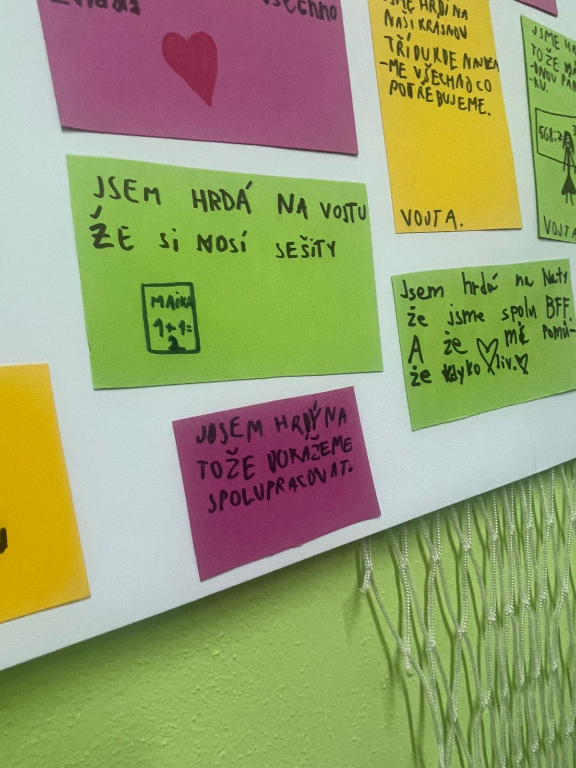 všechno
JSME HRDÍ NA
NAŠI KRÁSNOU
TŘÍDU KDE
-ME VŠECHNO CO
POTŘEBUJEME.
VOJTA.
JSME
TOŽE
568:
VOJTA
JSEM HRDÁ NA VOJTU
ŽE SI NOSÍ SEŠITY
MAtKA
1+1=
2
Jsem hrdá na Naty
že jsme spolu BFF.
A že mě pomů-
že kdyko liv.
JSEM HRDÝ NA
TOŽE DOKÁŽEME
SPOLUPRACOVAT.